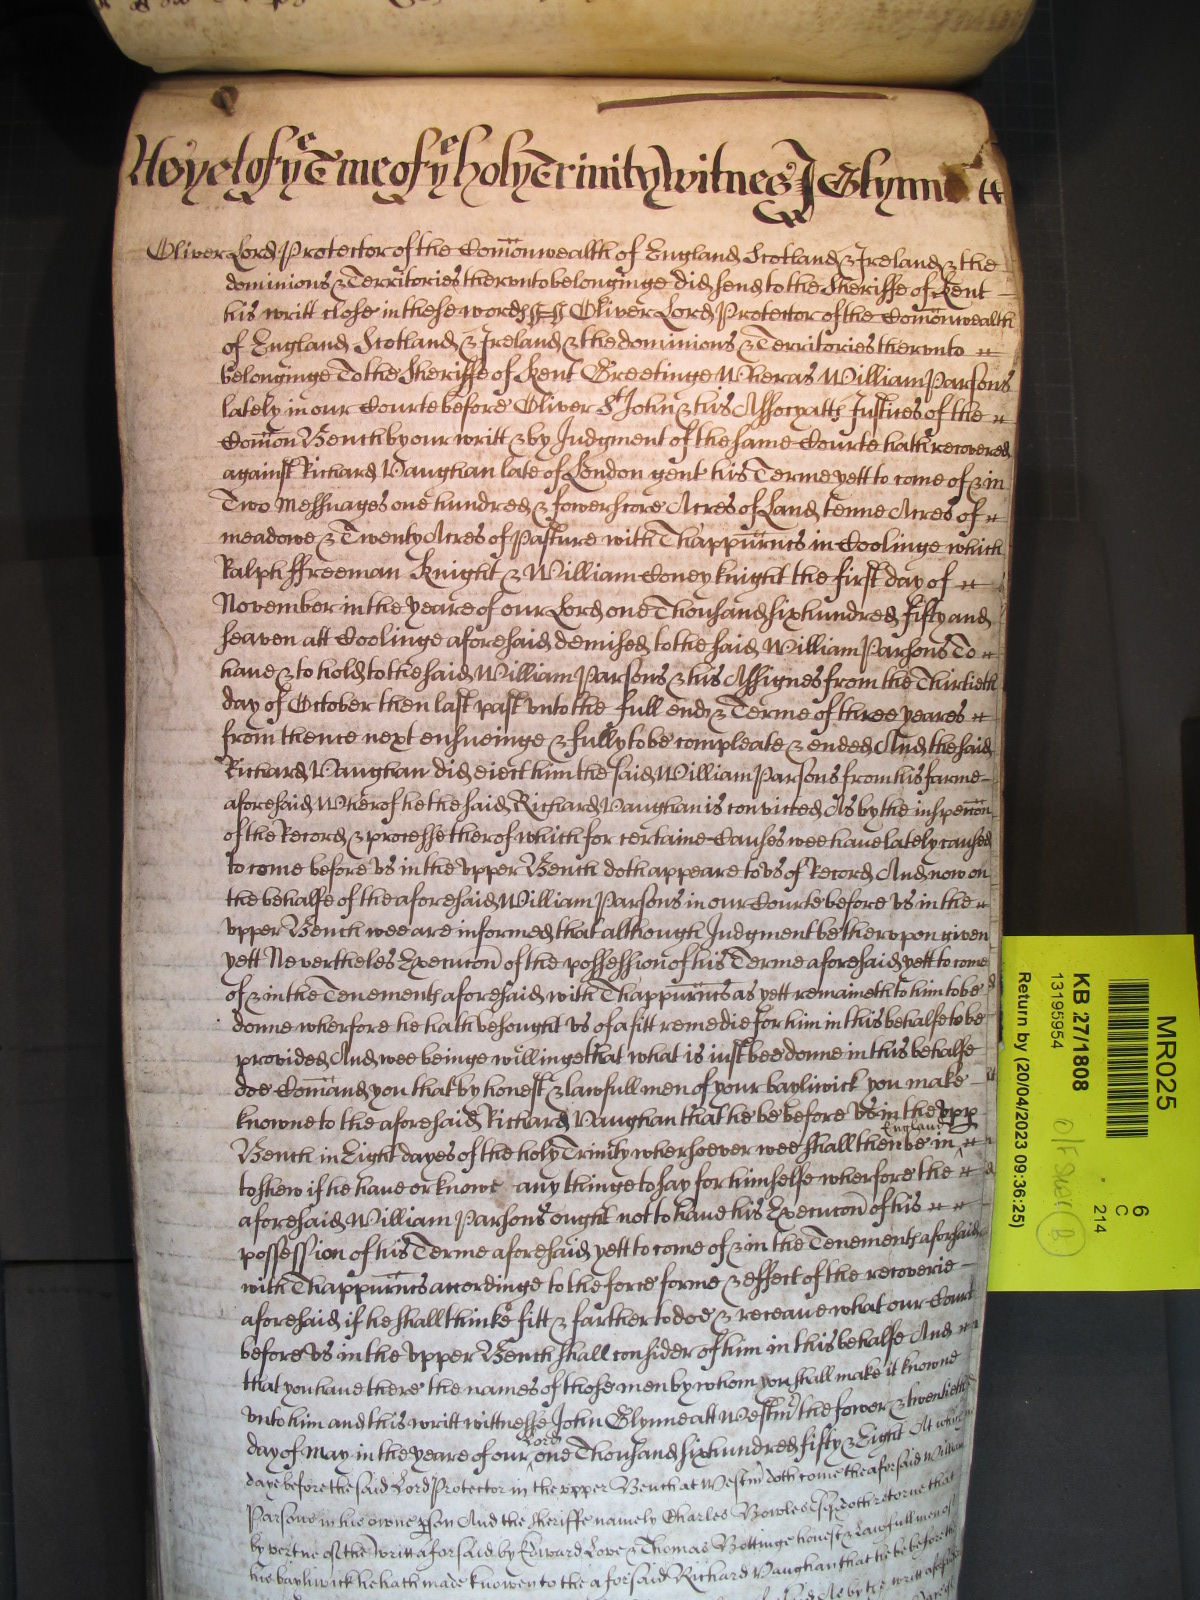 As yet of yᵉ Tme of yᵉ holy Trinity Witnes J Glynn
Oliver Lord Protector of the Com̄onwealth of England Scotland & Ireland & the
dominions & Territories therunto belonginge did send to the Sheriffe of Kent
his writt close in these words ss Oliver Lord Protector of the Com̄onwealth
of England Scotland & Ireland & the dominions & Territories therunto
belonginge To the Sheriffe of Kent Greetinge Wheras William Parsons
lately in our Courte before Oliver Sᵗ John & his Assocyats Justices of the
Com̄on Bench by our writt & by Judgment of the same Courte hath recovered
against Richard Vaughan late of London gent his Terme yett to come of & in
Two Messuages one hundred & fowerscore Acres of Land tenne Acres of
meadowe & Twenty Acres of Pasture with Thappurtn̄cs in Coolinge which
Ralph ffreeman Knight & William Coney knight the first day of
November in the yeare of our Lord one Thousand six hundred fifty and
seaven att Coolinge aforesaid demised to the said William Parsons To
have & to hold to the said William Parsons & his Assignes from the Thirtieth
day of October then last past vnto the full end & Terme of three yeares
from thence next ensueinge & fully to be compleate & ended And the said
Richard Vaughan did eiect him the said William Parsons from his farme
aforesaid Wherof he the said Richard Vaughan is convicted As by the inspecc̄on
of the Record & processe therof which for certaine Causes wee have lately caused
to come before vs in the vpper Bench doth appeare to vs of Record And now on
the behalfe of the aforesaid William Parsons in our Courte before vs in the
vpper Bench wee are informed that although Judgment be thervpon given
yett Nevertheles Execuc̄on of the possession of his Terme aforesaid yett to come
of & in the Tenements aforesaid with Thappurtn̄cs as yett remaineth to him to be
donne wherfore he hath besought vs of a fitt remedie for him in this behalfe to be
provided And wee beinge willinge that what is iust bee donne in this behalfe
doe Com̄and you that by honest & lawfull men of your bayliwick you make
knowne to the aforesaid Richard Vaughan that he be before vs in the vpp
Bench in Eight dayes of the holy Trinity whersoever wee shall then be in England
to shew if he have or knowe any thinge to say for himselfe wherfore the
aforesaid William Parsons ought not to have his Execuc̄on of his
possession of his Terme aforesaid yett to come of & in the Tenements aforsaid
with Thappurtn̄cs accordinge to the force forme & effect of the recoverie
aforesaid if he shall thinke fitt & farther to doe & receave what our Court
before vs in the vpper Bench shall consider of him in this behalfe And
that you have there the names of those men by whom you shall make it knowne
vnto him and this writt wittnesse John Glynne att Westmʳ the fower & twentieth
day of May in the yeare of our Lord one Thousand six hundred fifty & Eight At which
daye before the said Lord Protector in the vpper Bench at Westmʳ doth come the aforsaid William
Parsons in his owne pson And the Sheriffe namely Charles Bowles Esqʳ doth retorne that
by vertue of the writt aforsaid by Edward Love & Thomas Bottinge honest & lawfull men of
his bayliwick he hath made knowen to the aforsaid Richard Vaughan that he be before the
MR025
6
C
214
KB 27/1808
13195954
Return by (20/04/2023 09:36:25)